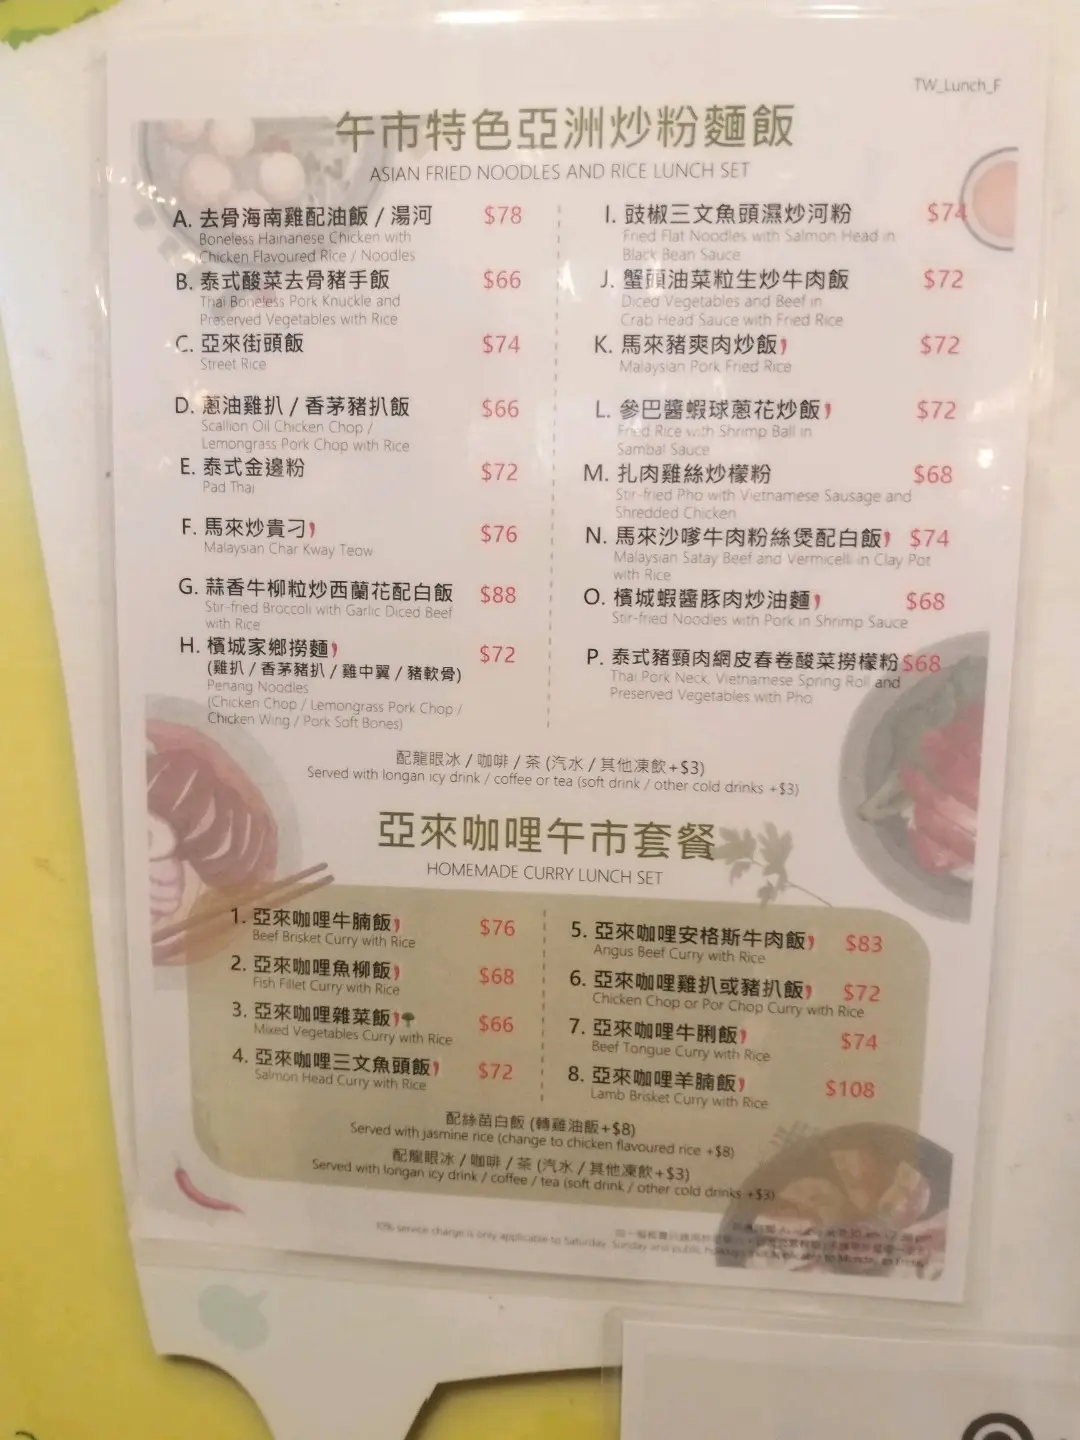 TW_Lunch_F
午市特色亞洲炒粉麵飯
ASIAN FRIED NOODLES AND RICE LUNCH SET
A. 去骨海南雞配油飯 / 湯河 $78
Boneless Hainanese Chicken with
Chicken Flavoured Rice / Noodles
B. 泰式酸菜去骨豬手飯 $66
Thai Boneless Pork Knuckle and
Preserved Vegetables with Rice
C. 亞來街頭飯 $74
Street Rice
D. 蔥油雞扒 / 香茅豬扒飯 $66
Scallion Oil Chicken Chop /
Lemongrass Pork Chop with Rice
E. 泰式金邊粉 $72
Pad Thai
F. 馬來炒貴刁 $76
Malaysian Char Kway Teow
G. 蒜香牛柳粒炒西蘭花配白飯 $88
Stir-fried Broccoli with Garlic Diced Beef
with Rice
H. 檳城家鄉撈麵 $72
(雞扒 / 香茅豬扒 / 雞中翼 / 豬軟骨)
Penang Noodles
(Chicken Chop / Lemongrass Pork Chop /
Chicken Wing / Pork Soft Bones)
I. 豉椒三文魚頭濕炒河粉 $74
Fried Flat Noodles with Salmon Head in
Black Bean Sauce
J. 蟹頭油菜粒生炒牛肉飯 $72
Diced Vegetables and Beef in
Crab Head Sauce with Fried Rice
K. 馬來豬爽肉炒飯 $72
Malaysian Pork Fried Rice
L. 參巴醬蝦球蔥花炒飯 $72
Fried Rice with Shrimp Ball in
Sambal Sauce
M. 扎肉雞絲炒檬粉 $68
Stir-fried Pho with Vietnamese Sausage and
Shredded Chicken
N. 馬來沙嗲牛肉粉絲煲配白飯 $74
Malaysian Satay Beef and Vermicelli in Clay Pot
with Rice
O. 檳城蝦醬豚肉炒油麵 $68
Stir-fried Noodles with Pork in Shrimp Sauce
P. 泰式豬頸肉網皮春卷酸菜撈檬粉 $68
Thai Pork Neck, Vietnamese Spring Roll and
Preserved Vegetables with Pho
配龍眼冰 / 咖啡 / 茶 (汽水 / 其他凍飲+$3)
Served with longan icy drink / coffee or tea (soft drink / other cold drinks +$3)
亞來咖哩午市套餐
HOMEMADE CURRY LUNCH SET
1. 亞來咖哩牛腩飯 $76
Beef Brisket Curry with Rice
2. 亞來咖哩魚柳飯 $68
Fish Fillet Curry with Rice
3. 亞來咖哩雜菜飯 $66
Mixed Vegetables Curry with Rice
4. 亞來咖哩三文魚頭飯 $72
Salmon Head Curry with Rice
5. 亞來咖哩安格斯牛肉飯 $83
Angus Beef Curry with Rice
6. 亞來咖哩雞扒或豬扒飯 $72
Chicken Chop or Por Chop Curry with Rice
7. 亞來咖哩牛脷飯 $74
Beef Tongue Curry with Rice
8. 亞來咖哩羊腩飯 $108
Lamb Brisket Curry with Rice
配絲苗白飯 (轉雞油飯+$8)
Served with jasmine rice (change to chicken flavoured rice +$8)
配龍眼冰 / 咖啡 / 茶 (汽水 / 其他凍飲+$3)
Served with longan icy drink / coffee / tea (soft drink / other cold drinks +$3)
10% service charge is only applicable to Saturday, Sunday and public holidays